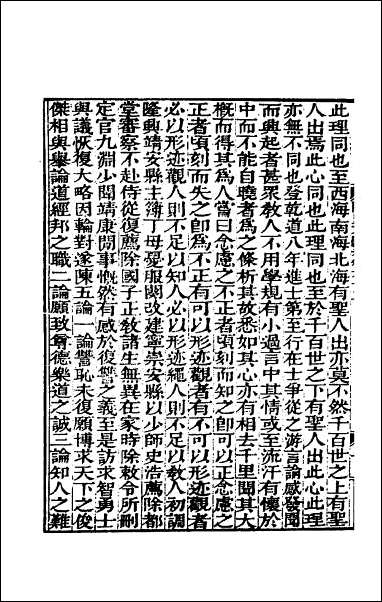 此理同也至西海南海北海有聖人出亦莫不然千百世之上有聖
人出焉此心同也此理同也至於千百世之下有聖人出此心此理
亦無不同也登乾道八年進士第至行在士爭從之游言論感發聞
而興起者甚衆敎人不用學規有小過言中其情或至流汗有懷於
中而不能自曉者爲之條析其故悉如其心亦有相去千里聞其大
槪而得其爲人嘗曰念慮之不正者頃刻而知之卽可以正念慮之
正者頃刻而失之卽爲不正有可以形迹觀者有不可以形迹觀者
必以形迹觀人則不足以知人必以形迹繩人則不足以敎人初調
隆興靖安縣主簿丁母憂服闋改建寧崇安縣以少師史浩薦除都
堂審察不赴侍從復薦除國子正敎諸生無異在家時除敕令所刪
定官九淵少聞靖康閒事慨然有感於復讐之義至是訪求智勇士
與議恢復大略因輪對遂陳五論一論讐恥未復願博求天下之俊
傑相與舉論道經邦之職二論願致尊德樂道之誠三論知人之難